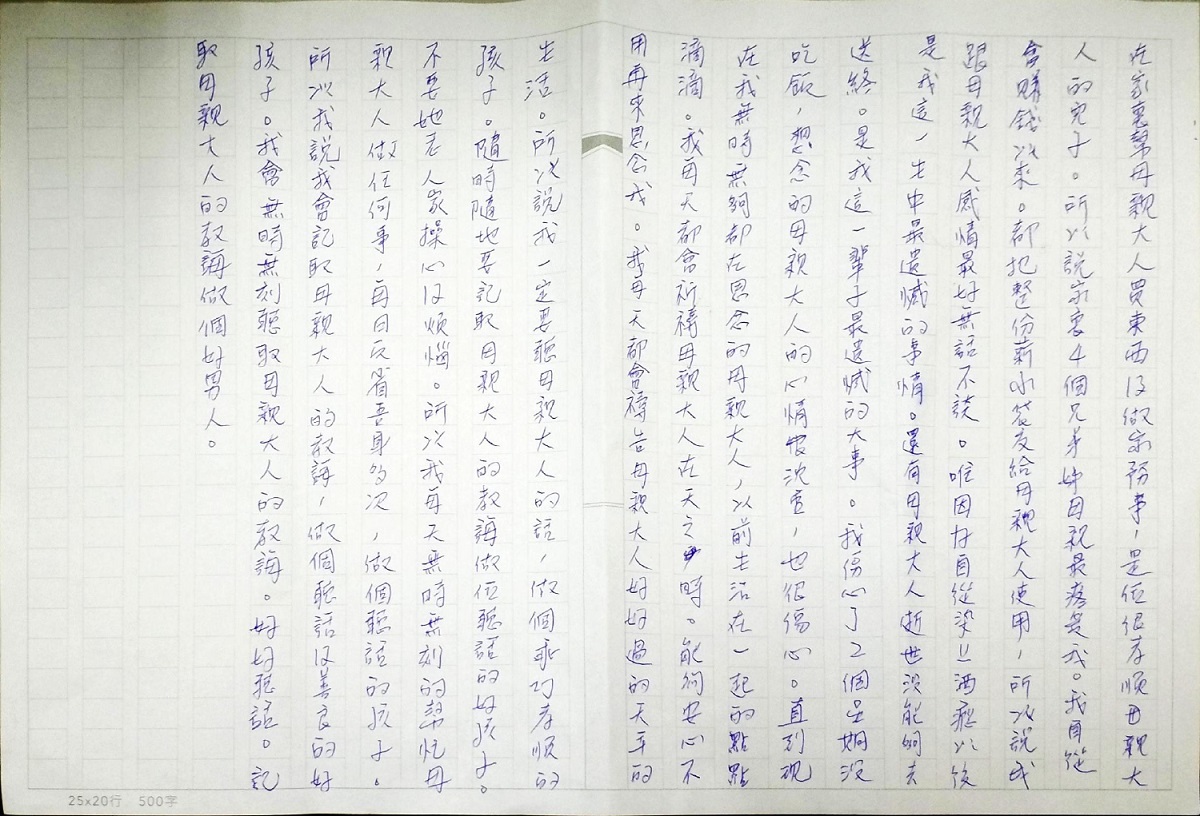 在家裏幫母親大人買東西及做家務事，是位很孝順母親大
人的兒子。所以說家裏4個兄弟姊母親最疼是我。我自從
會賺錢以來。都把整份薪水袋交給母親大人使用，所以說我
跟母親大人感情最好無話不談。唯因為自從染上酒癮以後
是我這一生中最遺憾的事情。還有母親大人逝世沒能夠去
送終。是我這一輩子最遺憾的大事。我傷心了2個星期沒
吃飯，想念的母親大人的心情很沈重，也很傷心。直到現
在我無時無夠都在思念的母親大人，以前生活在一起的點點
滴滴。我每天都會祈禱母親大人在天之時。能夠安心不
用再來思念我。我每天都會禱告母親大人好好過的天上的
生活。所以說我一定要聽母親大人的話，做個乖巧孝順的
孩子。隨時隨地要記取母親大人的教誨做位聽話的好孩子。
不要她老人家操心及煩惱。所以我每天無時無刻的幫忙母
親大人做任何事，每日反省吾身多次，做個聽話的孩子。
所以我說我會記取母親大人的教誨，做個聽話及善良的好
孩子。我會無時無刻聽取母親大人的教誨。好好聽話。記
取母親大人的教誨做個好男人。
25x20行 500字